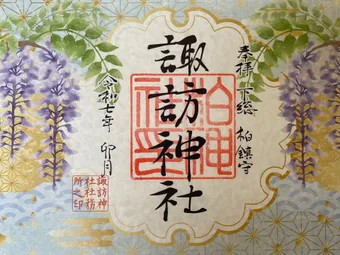 奉拝 下総 柏鎮守
諏訪神社
令和七年 卯月
諏訪神
社社務
所之印